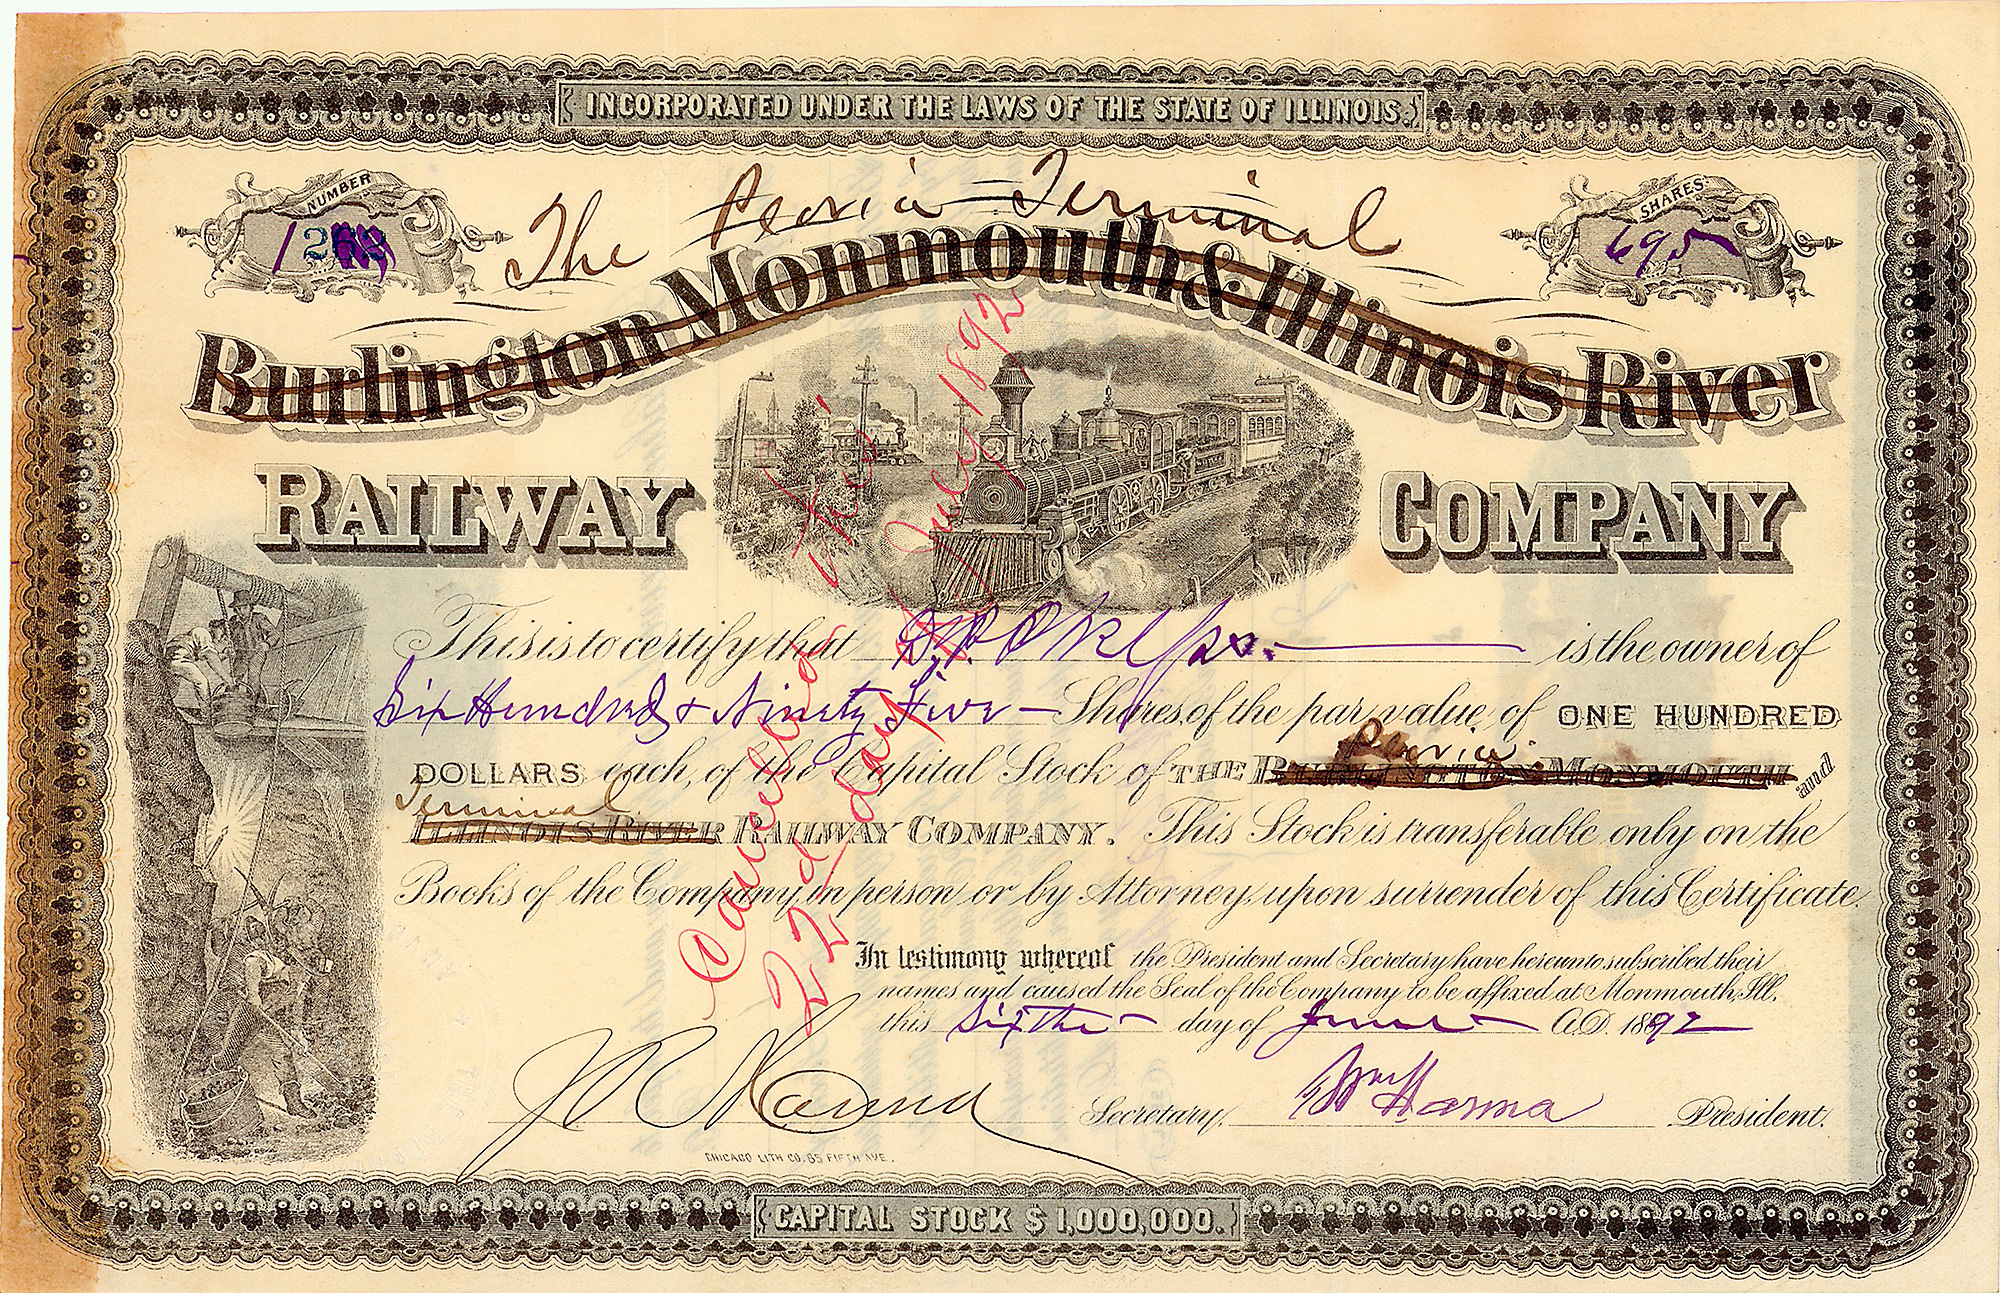 INCORPORATED UNDER THE LAWS OF THE STATE OF ILLINOIS.
NUMBER
SHARES
695
The Peoria Terminal
Burlington Monmouth & Illinois River
RAILWAY COMPANY
This is to certify that is the owner of
Six Hundred & Ninety Five Shares, of the par value of ONE HUNDRED
Peoria
DOLLARS each, of the Capital Stock of THE BURLINGTON, MONMOUTH and
Terminal
ILLINOIS RIVER RAILWAY COMPANY. This Stock is transferable only on the
Books of the Company, in person or by Attorney, upon surrender of this Certificate.
In testimony whereof the President and Secretary have hereunto subscribed their
names and caused the Seal of the Company to be affixed at Monmouth, Ill.
this Sixth day of June A.D. 1892
Secretary. Wm Hanna President.
Cancelled this
22d day of July 1892
CHICAGO LITH CO, 65 FIFTH AVE.
CAPITAL STOCK $1,000,000.